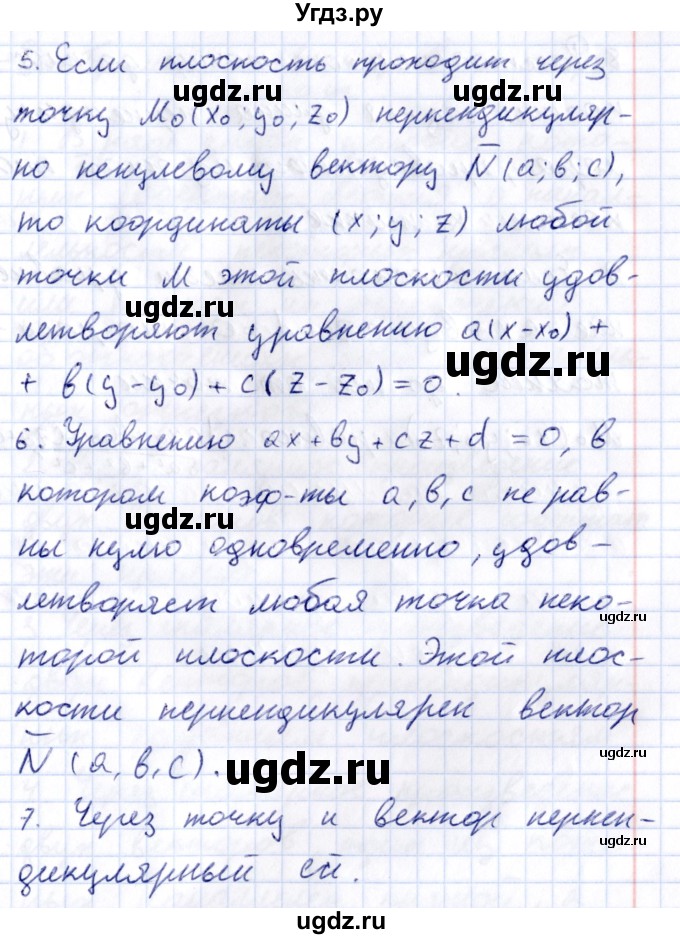 Угдз.ру
5. Если плоскость проходит через
ugdz.ru
точку M₀(x₀; y₀; z₀) перпендикуляр-
но ненулевому вектору N̅(a; в; c),
то координаты (x; y; z) любой
точки M этой плоскости удов-
ugdz.ru
летворяют уравнению a(x-x₀) +
ugdz.ru
+ в(y-y₀) + c(z-z₀) = 0.
6. Уравнению ax+вy+cz+d=0, в
котором коэф-ты a, в, c не рав-
ugdz.ru
ны нулю одновременно, удов-
летворяет любая точка неко-
ugdz.ru
торой плоскости. Этой плос-
кости перпендикулярен вектор
N̅ (a, в, c).
ugdz.ru
7. Через точку и вектор перпен-
дикулярный ей.
ugdz.ru